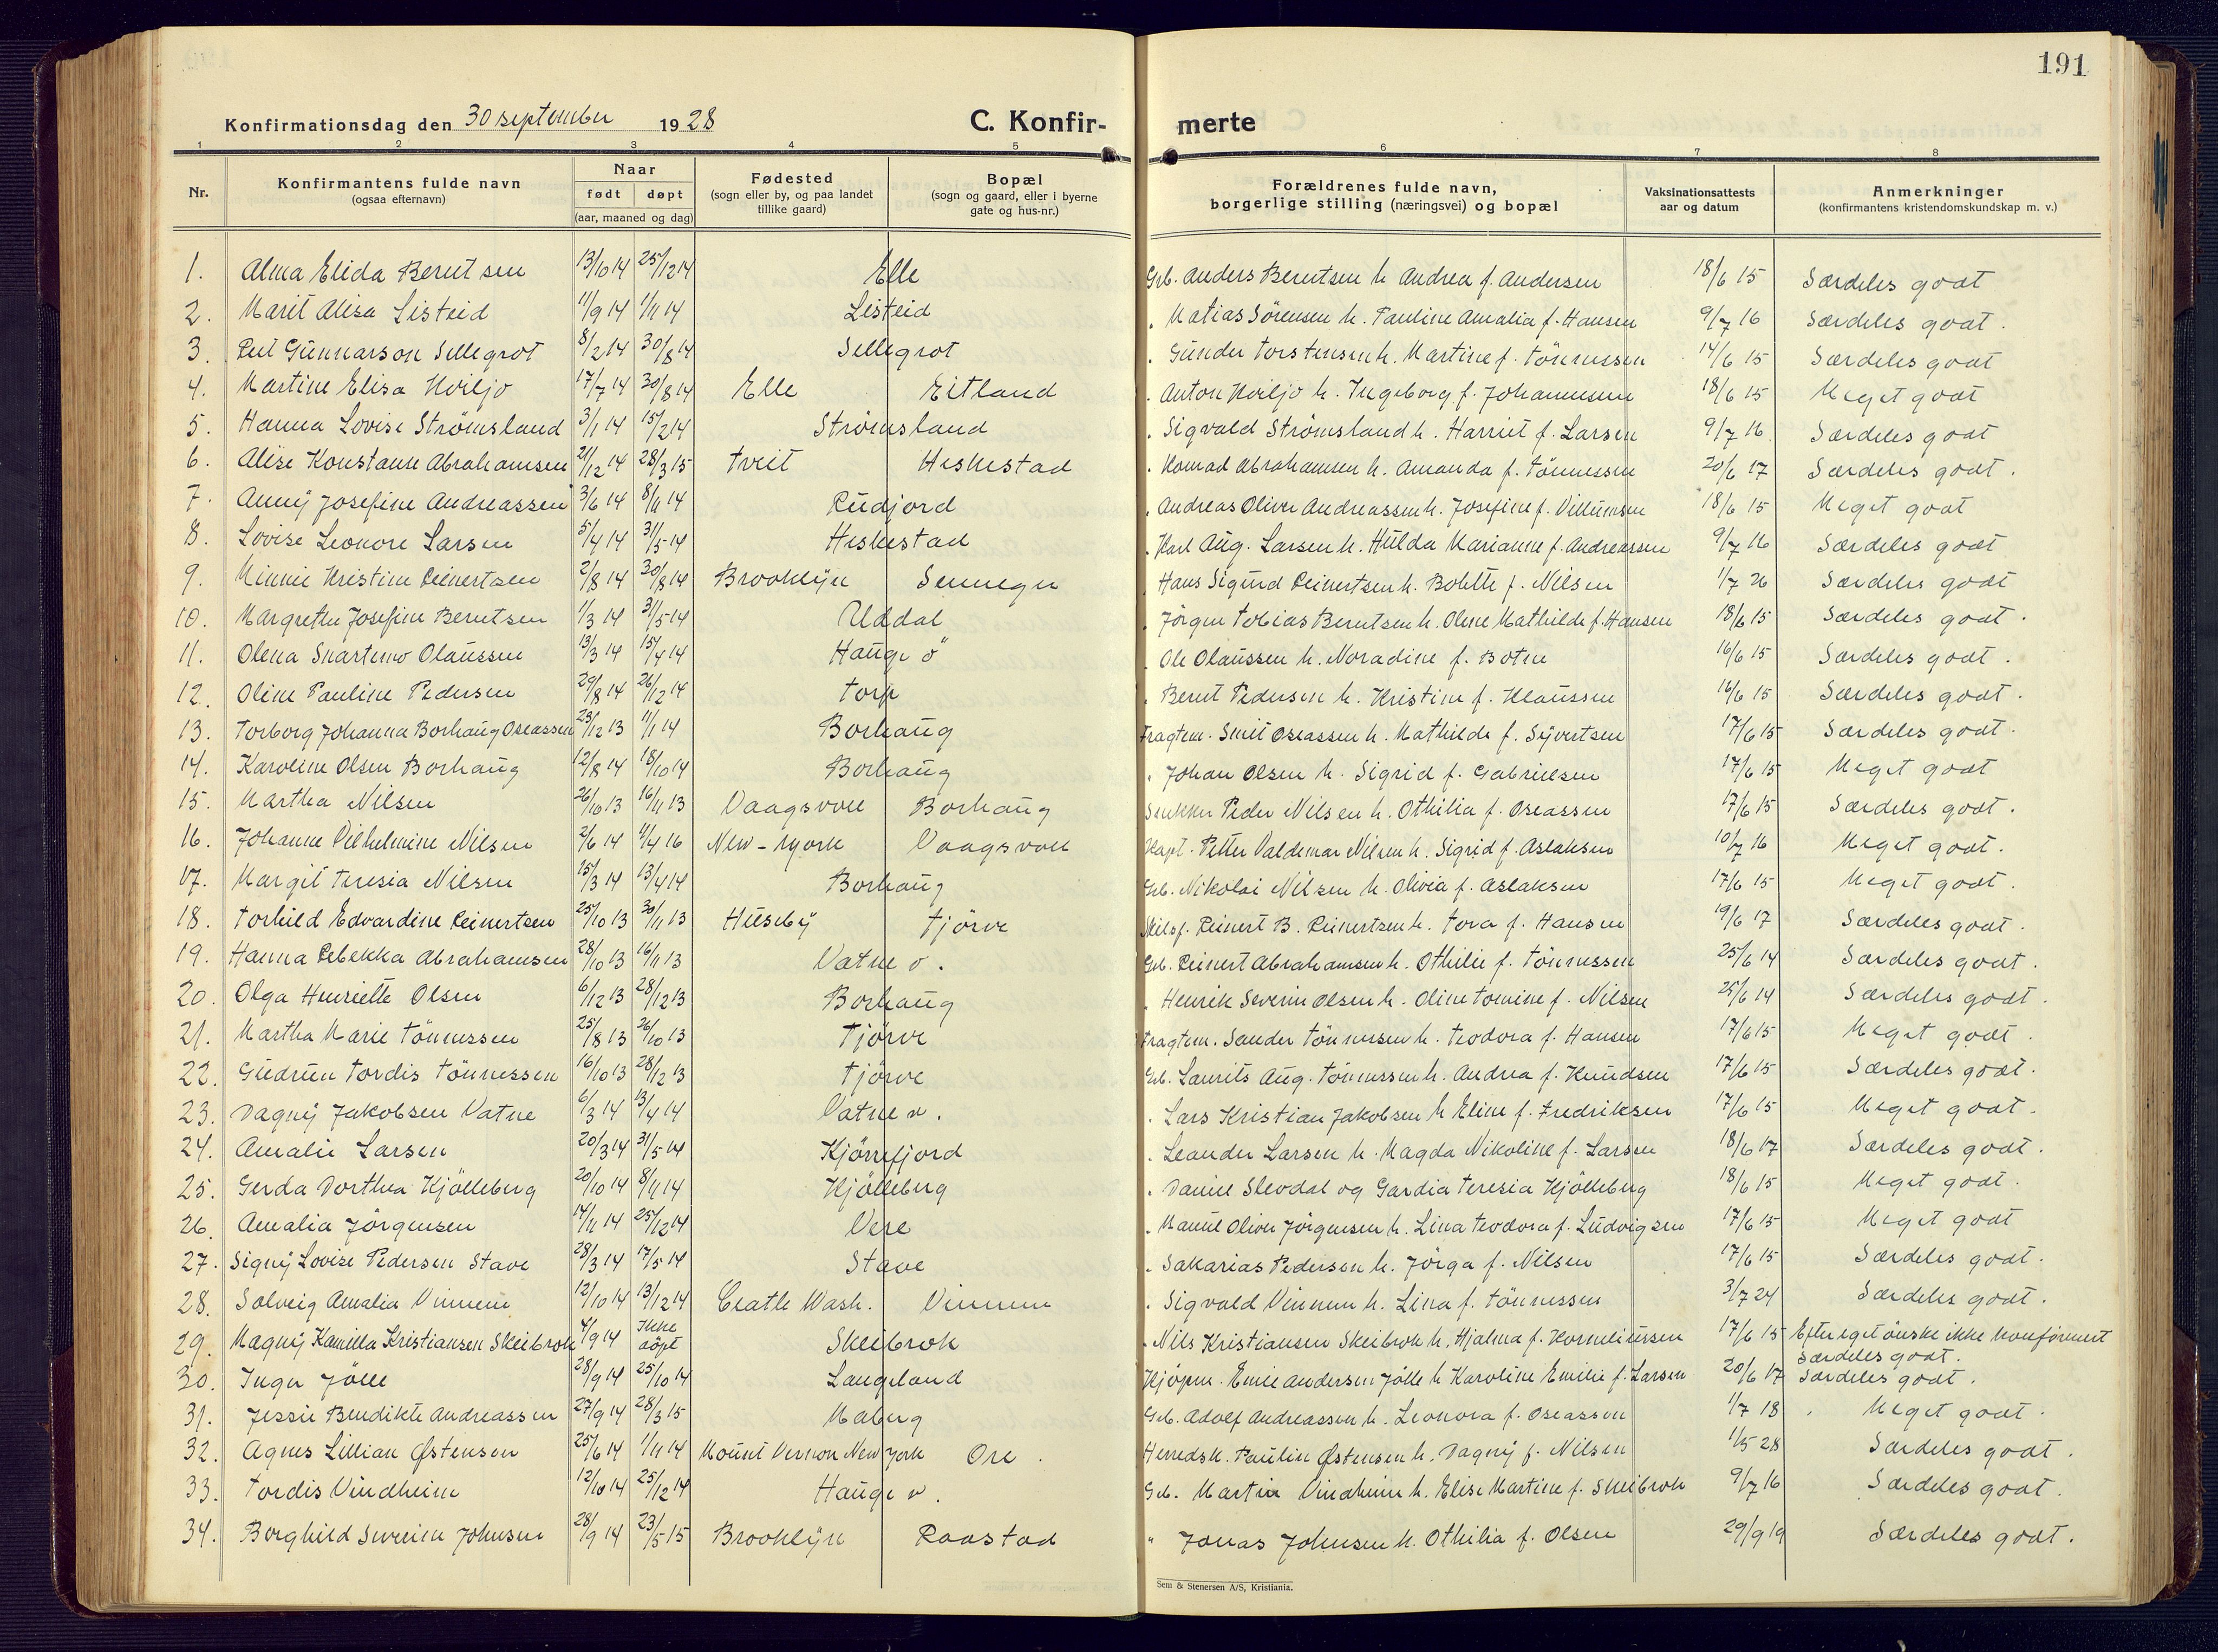 191
Konfirmationsdag den 30 september 1928 C. Konfir- merte
1 2 3 4 5 6 7 8
Nr. Konfirmantens fulde navn (ogsaa efternavn) Naar født døpt (aar, maaned og dag) Fødested (sogn eller by, og paa landet tillike gaard) Bopæl (sogn og gaard, eller i byerne gate og hus-nr.) Forældrenes fulde navn, borgerlige stilling (næringsvei) og bopæl Vaksinationsattests aar og datum Anmerkninger (konfirmantens kristendomskundskap m. v.)
1. Alma Elida Berntsen 13/10 14 25/12 14 Elle Grb. Anders Berntsen h. Andrea f. Andersen 18/6 15 Særdeles godt
2. Marit Alisa Listeid 11/9 14 1/11 14 Listeid . Matias Sörensen h. Pauline Amalia f. Hansen 9/7 16 Særdeles godt.
3. Gunnarson Sellegrot 8/2 14 30/8 14 Sellegrot . Gunder Torstensen h. Martine f. Tönnessen 14/6 15 Særdeles godt
4. Martine Elisa Kviljo 17/7 14 30/8 14 Elle Eitland . Anton Kviljo h. Ingeborg f. Johannesen 18/6 15 Meget godt
5. Hanna Lovise Strömsland 3/1 14 15/2 14 Strömsland . Sigvald Strömsland h. Harriet f. Larsen 9/7 16. Særdeles godt
6. Alise Konstanse Abrahamsen 21/12 14 28/3 15 Tveit Heskestad . Konrad Abrahamsen h. Amanda f. Tönnessen 20/6 17 Særdeles godt.
7. Anny Josefine Andreassen 3/6 14 8/11 14 Rudjord . Andreas Oliver Andreassen h. Josefine f. Villumsen 18/6 15 Meget godt
8. Lovise Leonore Larsen 5/4 14 31/5 14 Heskestad . Karl Aug. Larsen h. Hulda Marianne f. Andreassen 9/7 16 Særdeles godt
9. Minnie Kristine Reinertsen 2/8 14 30/8 14 Brooklyn Sennegn . Hans Sigurd Reinertsen h. Bolette f. Nilsen 1/7 26 Særdeles godt
10. Margrethe Josefine Berntsen 1/3 14 31/5 14 Uddal . Jörgen Tobias Berntsen h. Oline Mathilde f. Hansen 18/6 15 Særdeles godt.
11. Olena Snartemo Olaussen 13/3 14 15/4 14 Hauge ö . Ole Olaussen h. Noradine f. Botne 16/6 15 Særdeles godt.
12. Oline Pauline Pedersen 29/8 14 26/12 14 Torp . Bernt Pedersen h. Kristine f. Klaussen 16/6 15 Særdeles godt.
13. Torborg Johanna Borhaug Oseassen 23/12 13 1/1 14 Borhaug Fragtem. Smit Oseassen h. Mathilde f. Syvertsen 17/6 15 Særdeles godt.
14. Karoline Olsen Borhaug 12/8 14 18/10 14 Borhaug . Johan Olsen h. Sigrid f. Gabrielsen 17/6 15 Meget godt
15. Martha Nilsen 26/10 13 16/11 13 Vaagsvoll Borhaug Snekker Peder Nilsen h. Othilia f. Oseassen 17/6 15 Særdeles godt.
16. Johanne Vilhelmine Nilsen 2/6 14 4/4 16 New-Nyork Vaagsvoll Kapt. Petter Valdemar Nilsen h. Sigrid f. Aslaksen 10/7 16 Meget godt.
17. Margit Teresia Nilsen 15/3 14 13/4 14 Borhaug Grb. Nikolai Nilsen h. Olivia f. Aslaksen 17/6 15 Meget godt.
18. Torhild Edvardine Reinertsen 25/10 13 30/11 13 Huseby Tjörve Skilsf. Reinert B. Reinertsen h. Tora f. Hansen 19/6 17 Særdeles godt.
19. Hanna Rebekka Abrahamsen 28/10 13 16/11 13 Vatne ö. Grb. Reinert Abrahamsen h. Othilie f. Tönnessen 25/6 14 Særdeles godt.
20. Olga Henriette Olsen 6/12 13 28/12 13 Borhaug . Henrik Severin Olsen h. Oline Tomine f. Nilsen 25/6 14 Særdeles godt.
21. Martha Marie Tönnessen 25/8 13 26/10 13 Tjörve Fragtem. Sander Tönnessen h. Teodora f. Hansen 17/6 15 Meget godt.
22. Gudrun Tordis Tönnessen 16/10 13 28/12 13 Tjörve Grb. Laurits Aug. Tönnessen h. Andrea f. Knudsen 17/6 15 Særdeles godt.
23. Dagny Jakobsen Vatne 6/3 14 13/4 14 Vatne v. . Lars Kristian Jakobsen h Eline f. Fredriksen 17/6 15 Meget godt.
24. Amalie Larsen 20/3 14 31/5 14 Kjörrefjord . Leander Larsen h. Magda Nikoline f. Larsen 18/6 17 Særdeles godt.
25. Gerda Dorthea Kjölleberg 20/10 14 8/11 14 Kjölleberg . Daniel Slevdal og Gardia Teresia Kjölleberg 18/6 15 Meget godt.
26. Amalia Jörgensen 14/11 14 25/12 14 Vere . Manuel Olivier Jörgensen h. Lina Teodora f. Ludvigsen 17/6 15 Meget godt
27. Signy Lovise Pedersen Stave 28/3 14 17/5 14 Stave . Sakarias Pedersen h. Jörga f. Nilsen 17/6 15 Særdeles godt.
28. Solveig Amalia Vinnem 12/10 14 13/12 14 Ceatle Wash. Vinnem . Sigvald Vinnem h. Lina f. Tönnessen 3/7 24 Særdeles godt.
29. Magny Kamilla Kristiansen Skeibrok 4/9 14 Ikke döpt Skeibrok . Nils Kristiansen Skeibrok h. Hjalma f. Korneliussen 17/6 15 Efter eget önske ikke konfirmert Særdeles godt.
30. Inger Jölle 28/9 14 25/10 14 Langeland Kjöpm. Emil Andersen Jölle h Karoline Emilie f. Larsen 20/6 17 Særdeles godt.
31. Jessie Bendikte Andreassen 27/9 14 28/3 15 Maberg Grb. Adolf Andreassen h. Leonora f. Oseassen 1/7 18 Meget godt.
32. Agnes Lillian Østensen 25/6 14 1/11 14 Mount Vernon New York Ore. Herredsk. Paulin Østensen h. Dagny f. Nilsen 1/5 28 Særdeles godt.
33. Tordis Vindheim 12/10 14 25/12 14 Hauge v. Grb. Martin Vindheim h. Elise Martine f. Skeibrok 9/7 16 Særdeles godt.
34. Borghild Severin Johnsen 28/9 14 23/5 15 Brooklyn Raastad " Jonas Johnsen h. Othilia f. Olsen 29/9 19 Særdeles godt.
Sem & Stenersen A/S, Kristiania.